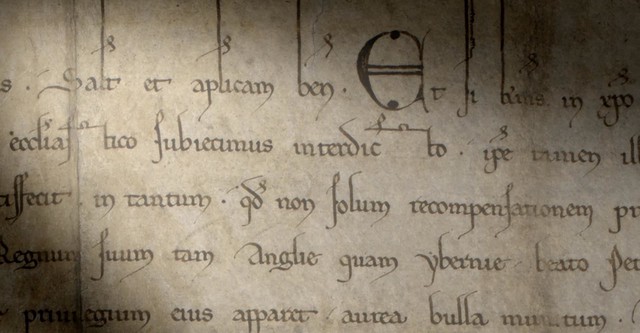 s. Salt et aplicam ben. Et si in xpo
eccliastico subiecimus interdicto. ipe tamen ill
tisfecit. in tantum. qd non solum recompensationem pr
Regnum suum tam Anglie quam ybernie beato Pet
privilegium eius apparet. aurea bulla munitum.